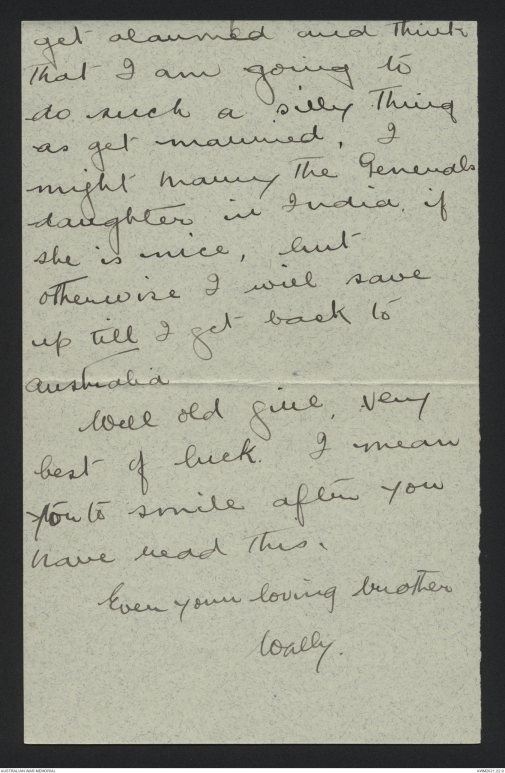 get alarmed and think
that I am going to
do such a silly thing
as get married, I
might marry the Generals
daughter in India, if
she is nice, but
otherwise I will save
up till I get back to
Australia
Well old girl, very
best of luck. I mean
you to smile after you
have read this.
Ever your loving brother
Wally.
AUSTRALIAN WAR MEMORIAL